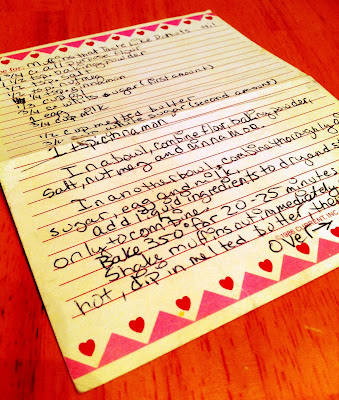 for: Muffins that Taste Like Donuts
1 3/4 c. all purpose flour
1 1/2 tsp. baking powder
1/2 tsp. salt
1/2 tsp. nutmeg
1/4 tsp. cinnamon
1/3 cup oil
3/4 c. white sugar (first amount)
1 egg
3/4 c. milk
1/2 cup melted butter
sugar (second amount)
1 tsp cinnamon
In a bowl, combine flour, baking powder,
salt, nutmeg and cinnamon.
In another bowl, combine thoroughly
sugar, egg and milk.
add liquid ingredients to dry and
only to combine.
Bake 350° for 20-25 minutes
Shake muffins out immediately
hot, dip in melted butter, then
over→
©1986 CURRENT, INC.